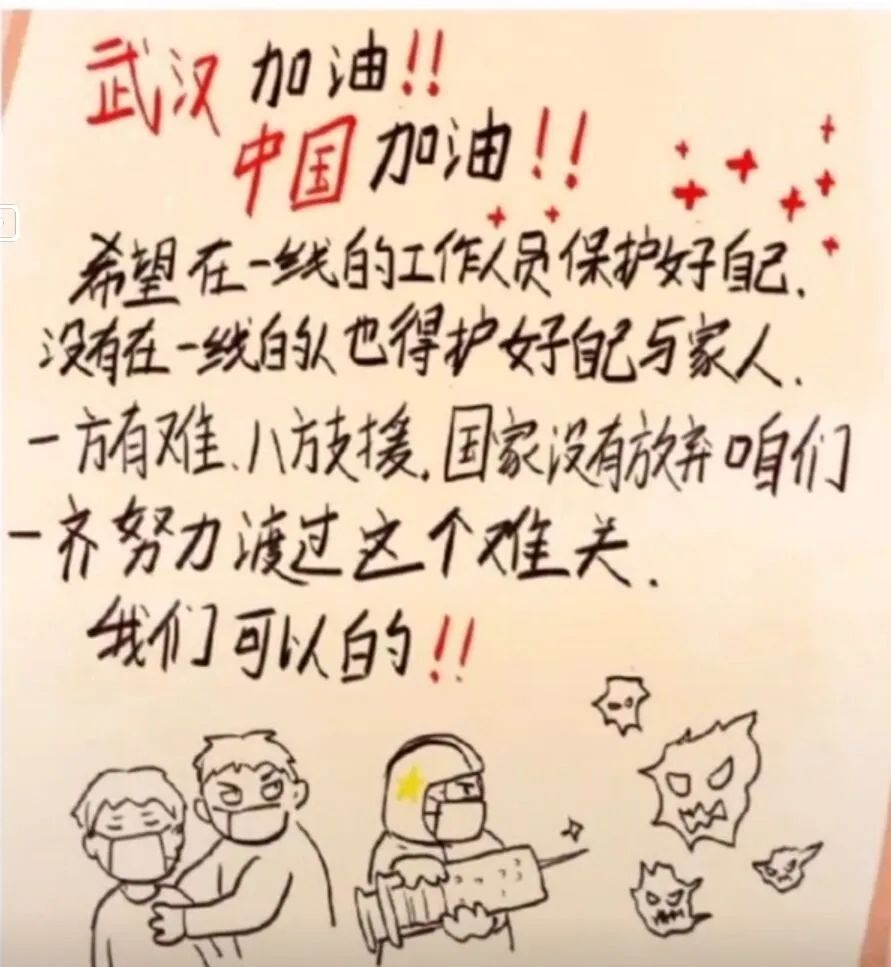 武汉加油!!
中国加油!!
希望在一线的工作人员保护好自己.
没有在一线的人也得护好自己与家人.
一方有难、八方支援.国家没有放弃咱们
一齐努力渡过这个难关.
我们可以的!!